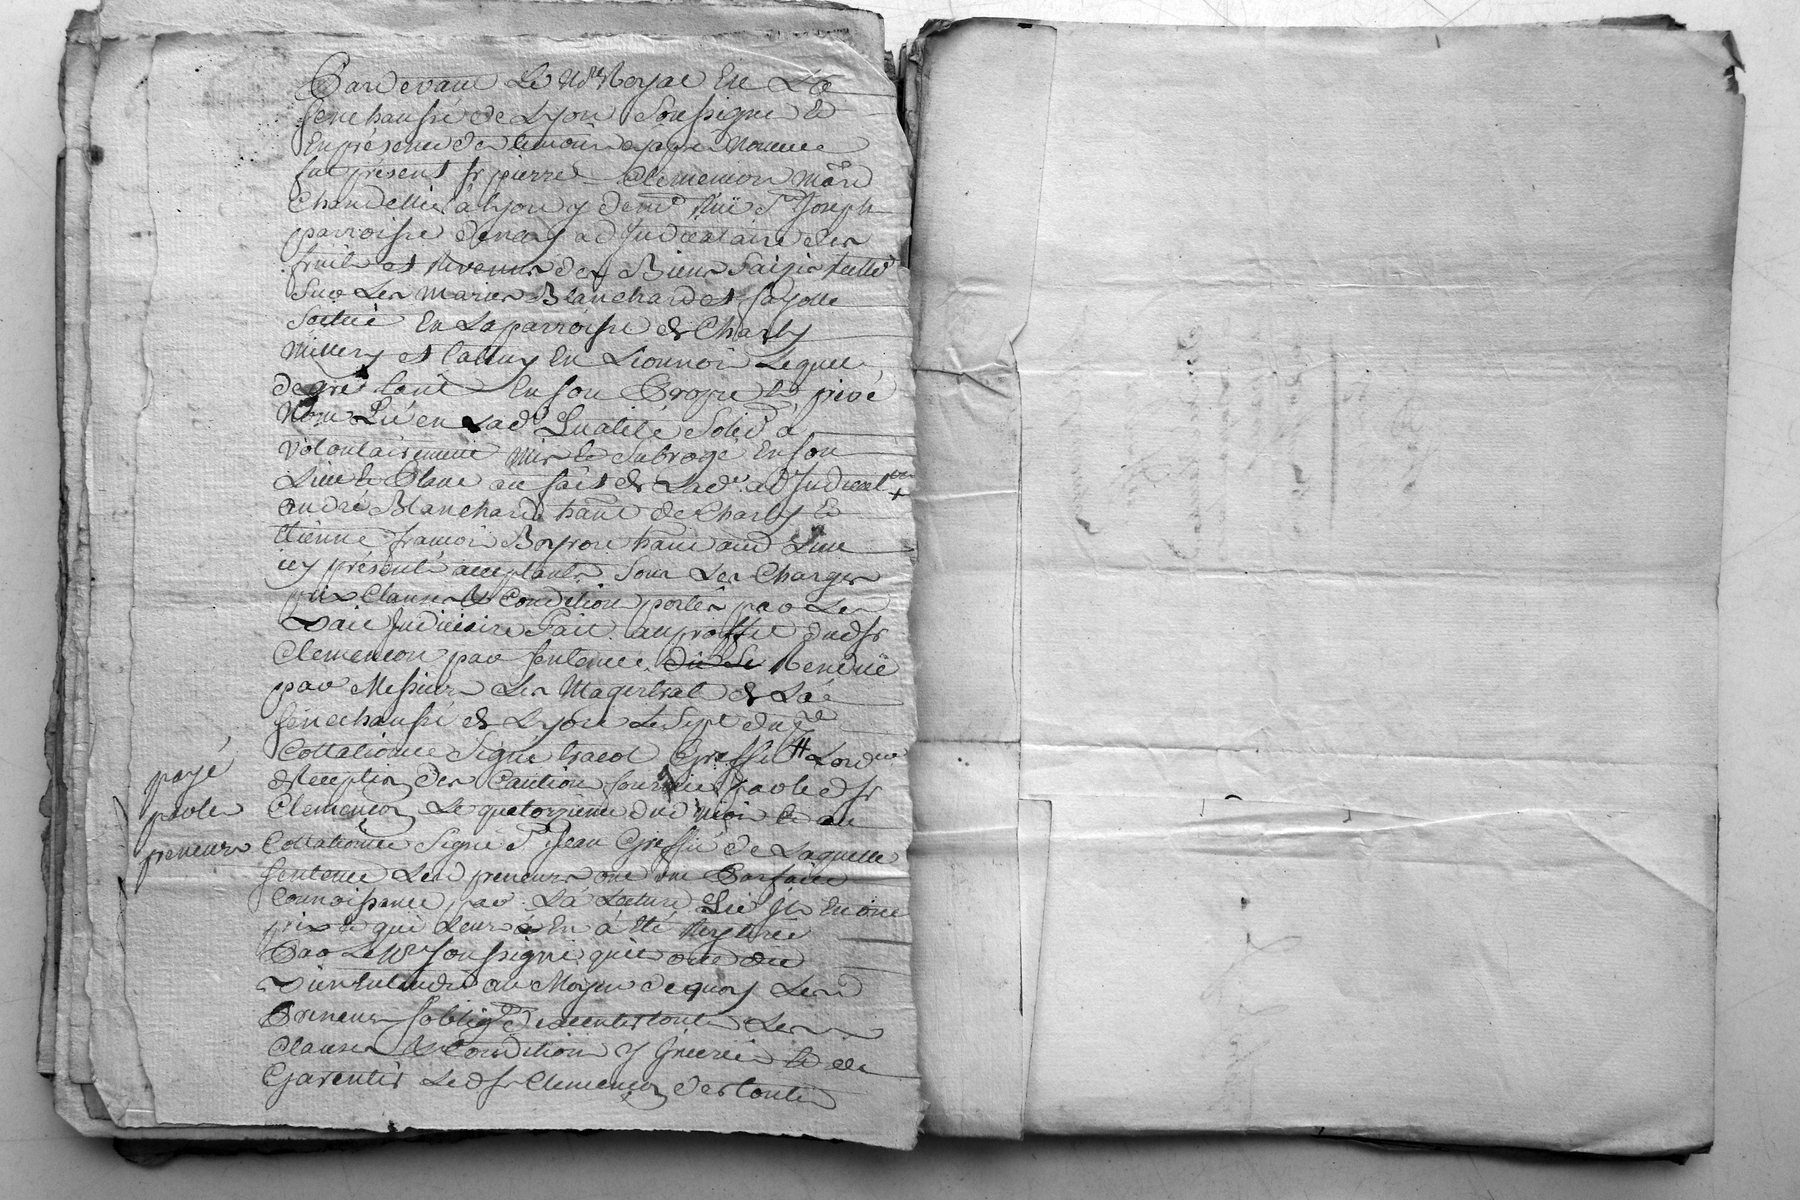 Pardevant Le No.re Royal En La
senechaussé de Lyon soussigné Et
En présence des temoins cy après Nommes
fut présent sr pierre Clemencon M
Chandellier à Lyon y demt rüe St Joseph
parroisse denay adjudicataire des
fruits et Revenus des Biens saisis
sur Les Maries Blanchard et fayolle
scitué En La parroisse de Charly
Millery et En Lionnois Lequel
de gré tant En son Propre Et privé
Nom qu'en Lade Qualité a
volontairement mis Et subrogé En son
Lieu Et Place au fait de Lade adjudicat
andré Blanchard hant de Charly Et
Etienne francois Boyron hant aud Lieu
icy présents acceptants sous Les Charges
prix Clauses Et Condition portés par Le
Bail Judiciaire Fait au proffit dud sr
Clemencon par sentence Rendüe
par Messieurs Les Magistrat de La
sénechaussé de Lyon Le sept du
Collationné Signé Greffier
Reception des Caution fournie par led sr
payé
par les
preneurs
Clemencon Le quatorzieme dud mois Et an
Collationné Signé St Jean Greffié de Laquelle
sentence Lesd preneurs ont dit Parfaite
Connoissance par La Lecture qu'ils En ont
pris Et qui Leurs En à été
Par Le No.re soussigné qu'ils ont dit
Bien Entendre au Moyen de quoy Lesd
Preneurs s'oblig d'executer toutes Les
Clauses Et Condition y Et de
Garentir Led sr Clemencon de toutes